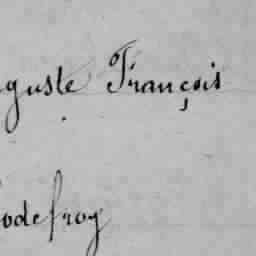 guste François
odefroy